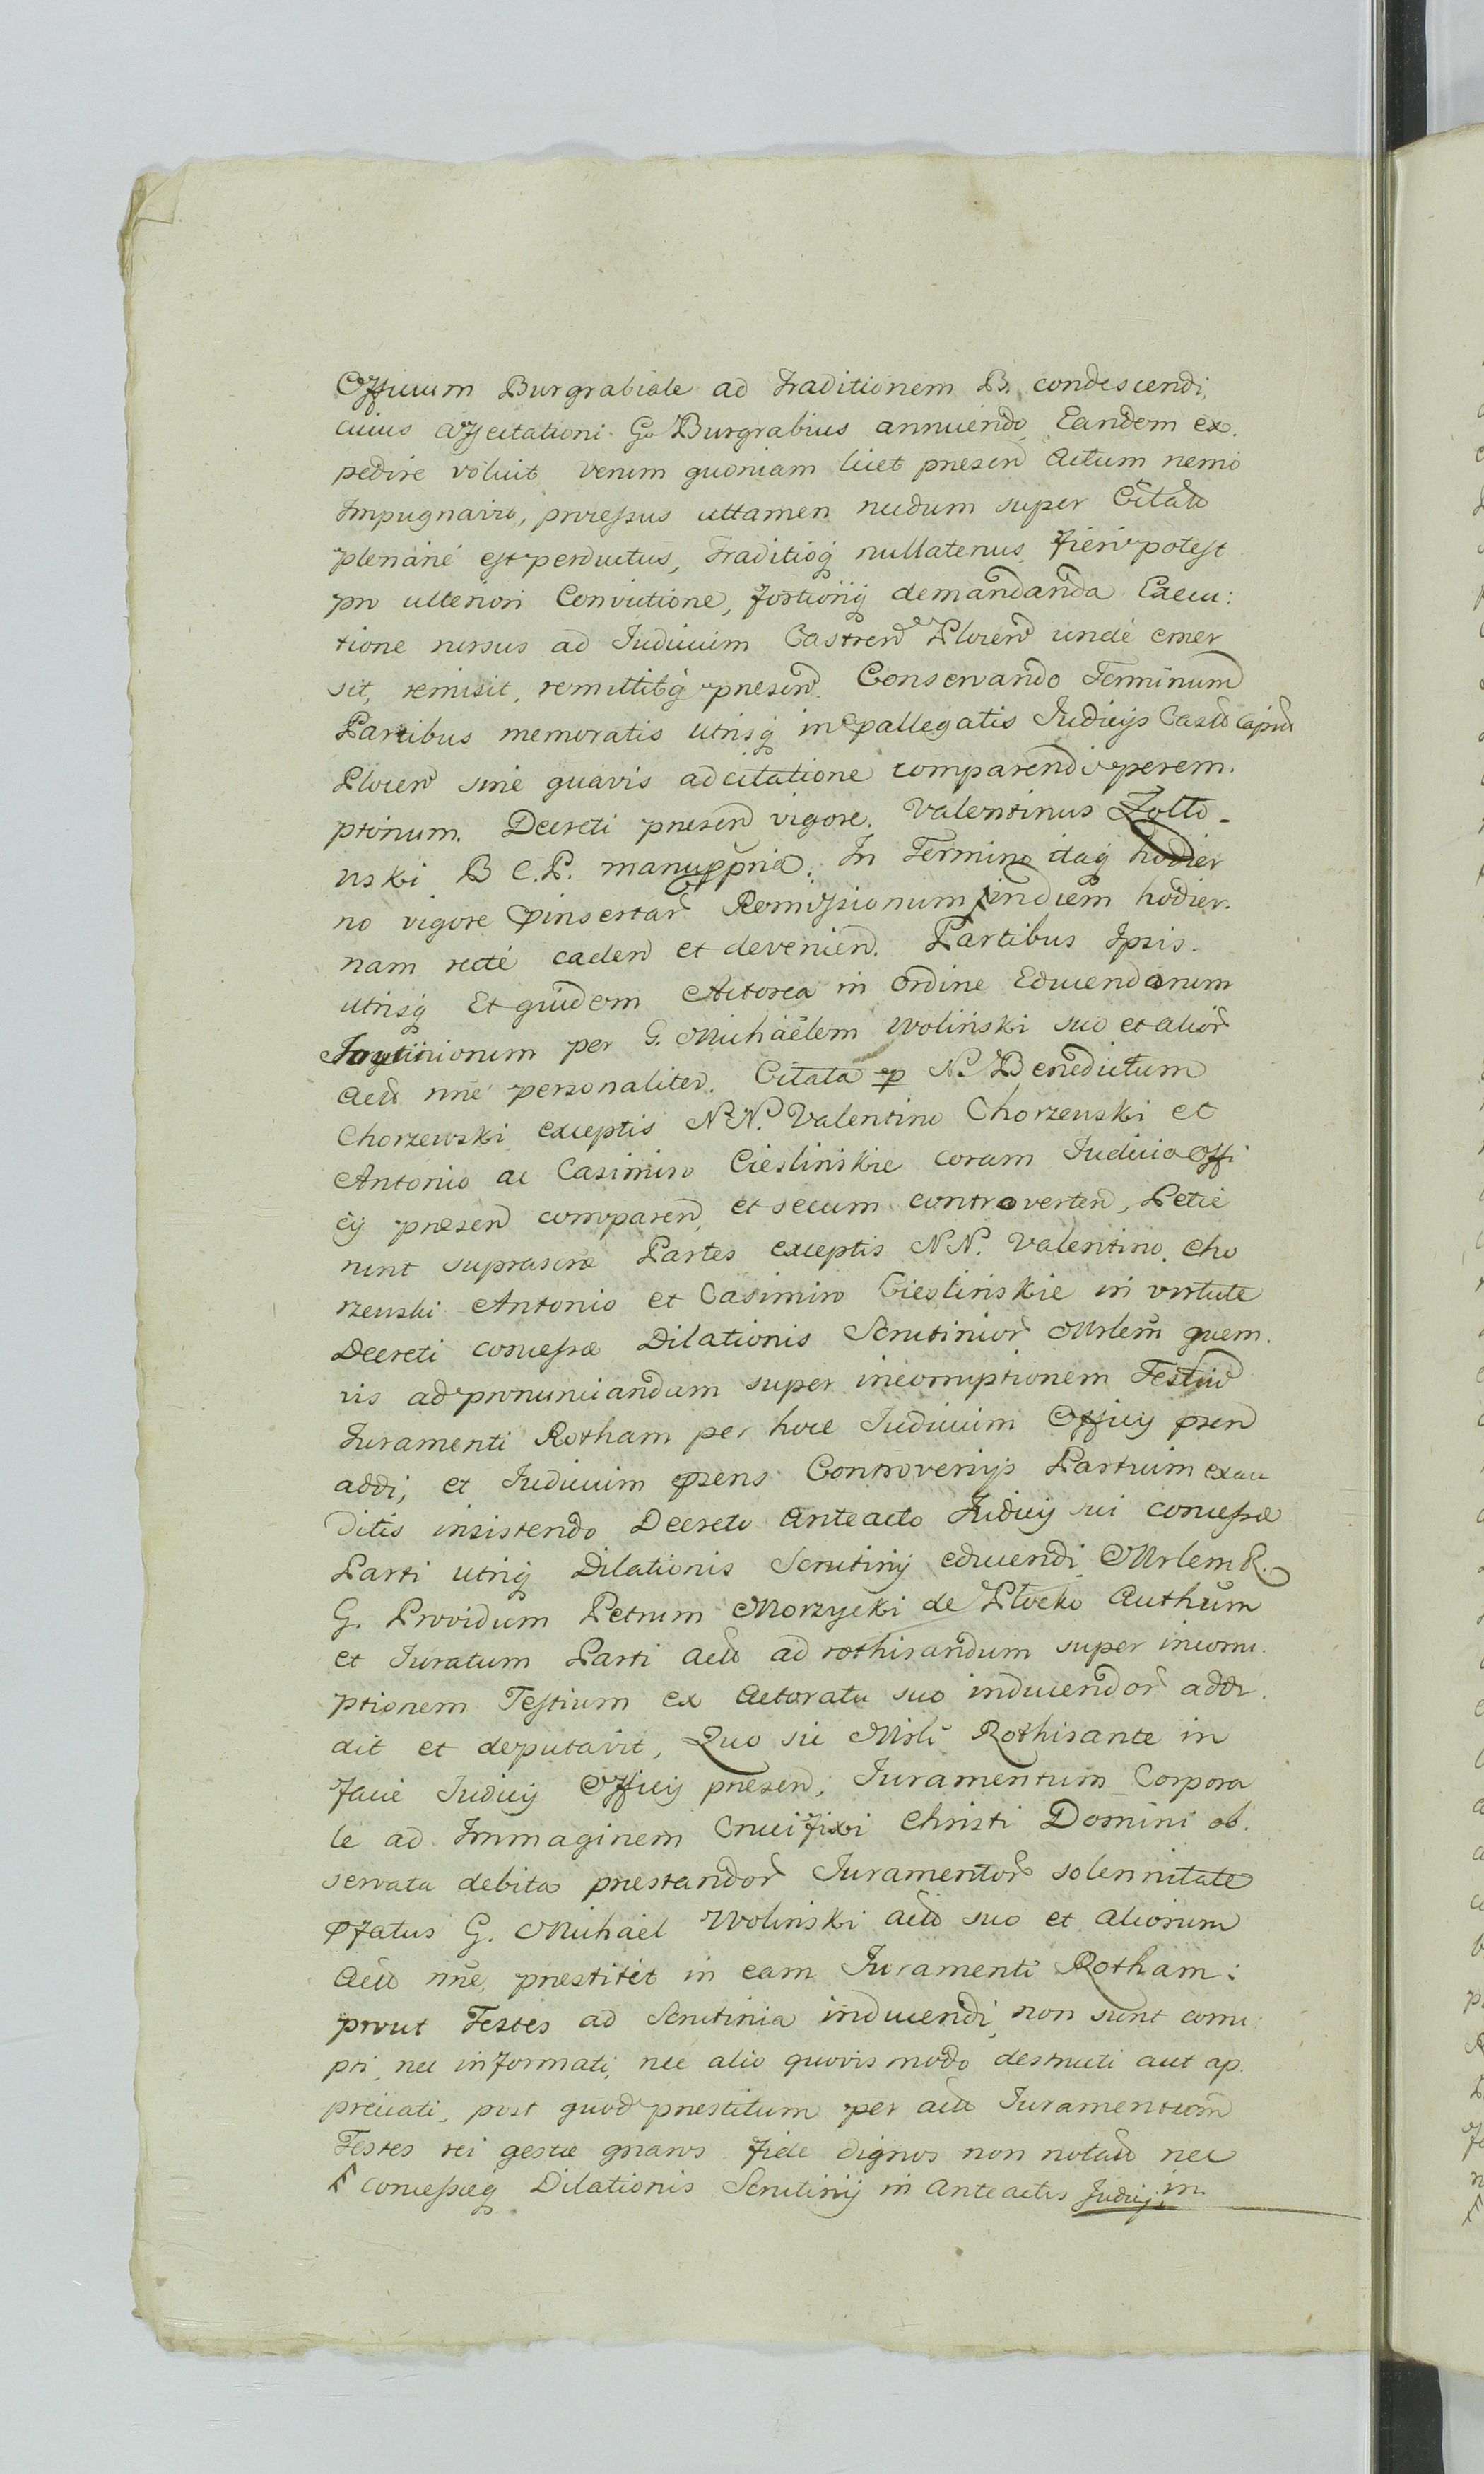 Officium Burgrabiale ad Traditionem B. condescendi,
cuius affectationi G. Burgrabius annuendo, Eandem ex.
pedire voluit Verum quoniam licet præsen Actum nemo
Impugnavit, processus attamen nudum super Citato
plenarié est perductus, Traditioq nullatenus fieri potest
pro ulteriori Convictione, fortioriq demandanda Execu:
tione rursus ad Iudicium Castren Plocen undé emer
sit, remisit, remittitq præsen. Conservando Terminum
Partibus memoratis utrisq in pallegatis Iudicijs Cast Capita
Plocen sine quavis adcitatione comparendi perem.
ptorium. Decreti præsen vigore. Valentinus Zolto-
wski B C. P. manu ppria. In Termino itaq hodier
no vigore pinsertar Remissionum in diem hodier.
nam recté caden et devenien. Partibus Ipsis.
utrisq Et quidem Actorea in ordine Educendorum
Scrutiniorum per G. Michaëlem Wolinski suo et alior
Act nne personaliter. Citata p N. Benedictum
Chorzewski exceptis NN. Valentino Chorzewski et
Antonio ac Casimiro Cieslinskie coram Iudicio Offi
cij præsen comparen, et secum controverten, Petie
runt suprascræ Partes exceptis NN. Valentino Cho
rzewski Antonio et Casimiro Cieslinskie in virtute
Decreti concessæ Dilationis Scrutinior Mrlem quem.
vis ad pronunciandum super incorruptionem Testiu
Iuramenti Rotham per hoce Iudicium Officij psen
addi, et Iudicium psens Controversijs Partium exau
ditis insistendo Decreto anteacto Iudicij sui concessæ
Parti utriq Dilationis Scrutinij educendi Mrlem R.
G. Providum Petrum Morzycki de Plocko Authum
et Iuratum Parti Act ad rothisandum super incorru.
ptionem Testium ex Actoratu suo inducendor addi.
dit et deputavit, Quo sic Mrli Rothisante in
facie Iudicij Officij præsen, Iuramentum Corpora
le ad Immaginem Crucifixi Christi Domini ob.
servata debita præstandor Iuramentor solennitate
pfatus G. Michaël Wolinski act suo et aliorum
Act nne, præstitit in eam Iuramenti Rotham:
prout Testes ad Scrutinia inducendi, non sunt corru:
pti, nec informati, nec alio quovis modo destructi aut ap.
preciati, post quod præstitum per act Iuramentum
Testes rei gestæ gnaros fide dignos non notat nec
concessæq Dilationis Scrutinij in anteactis Iudicijs in